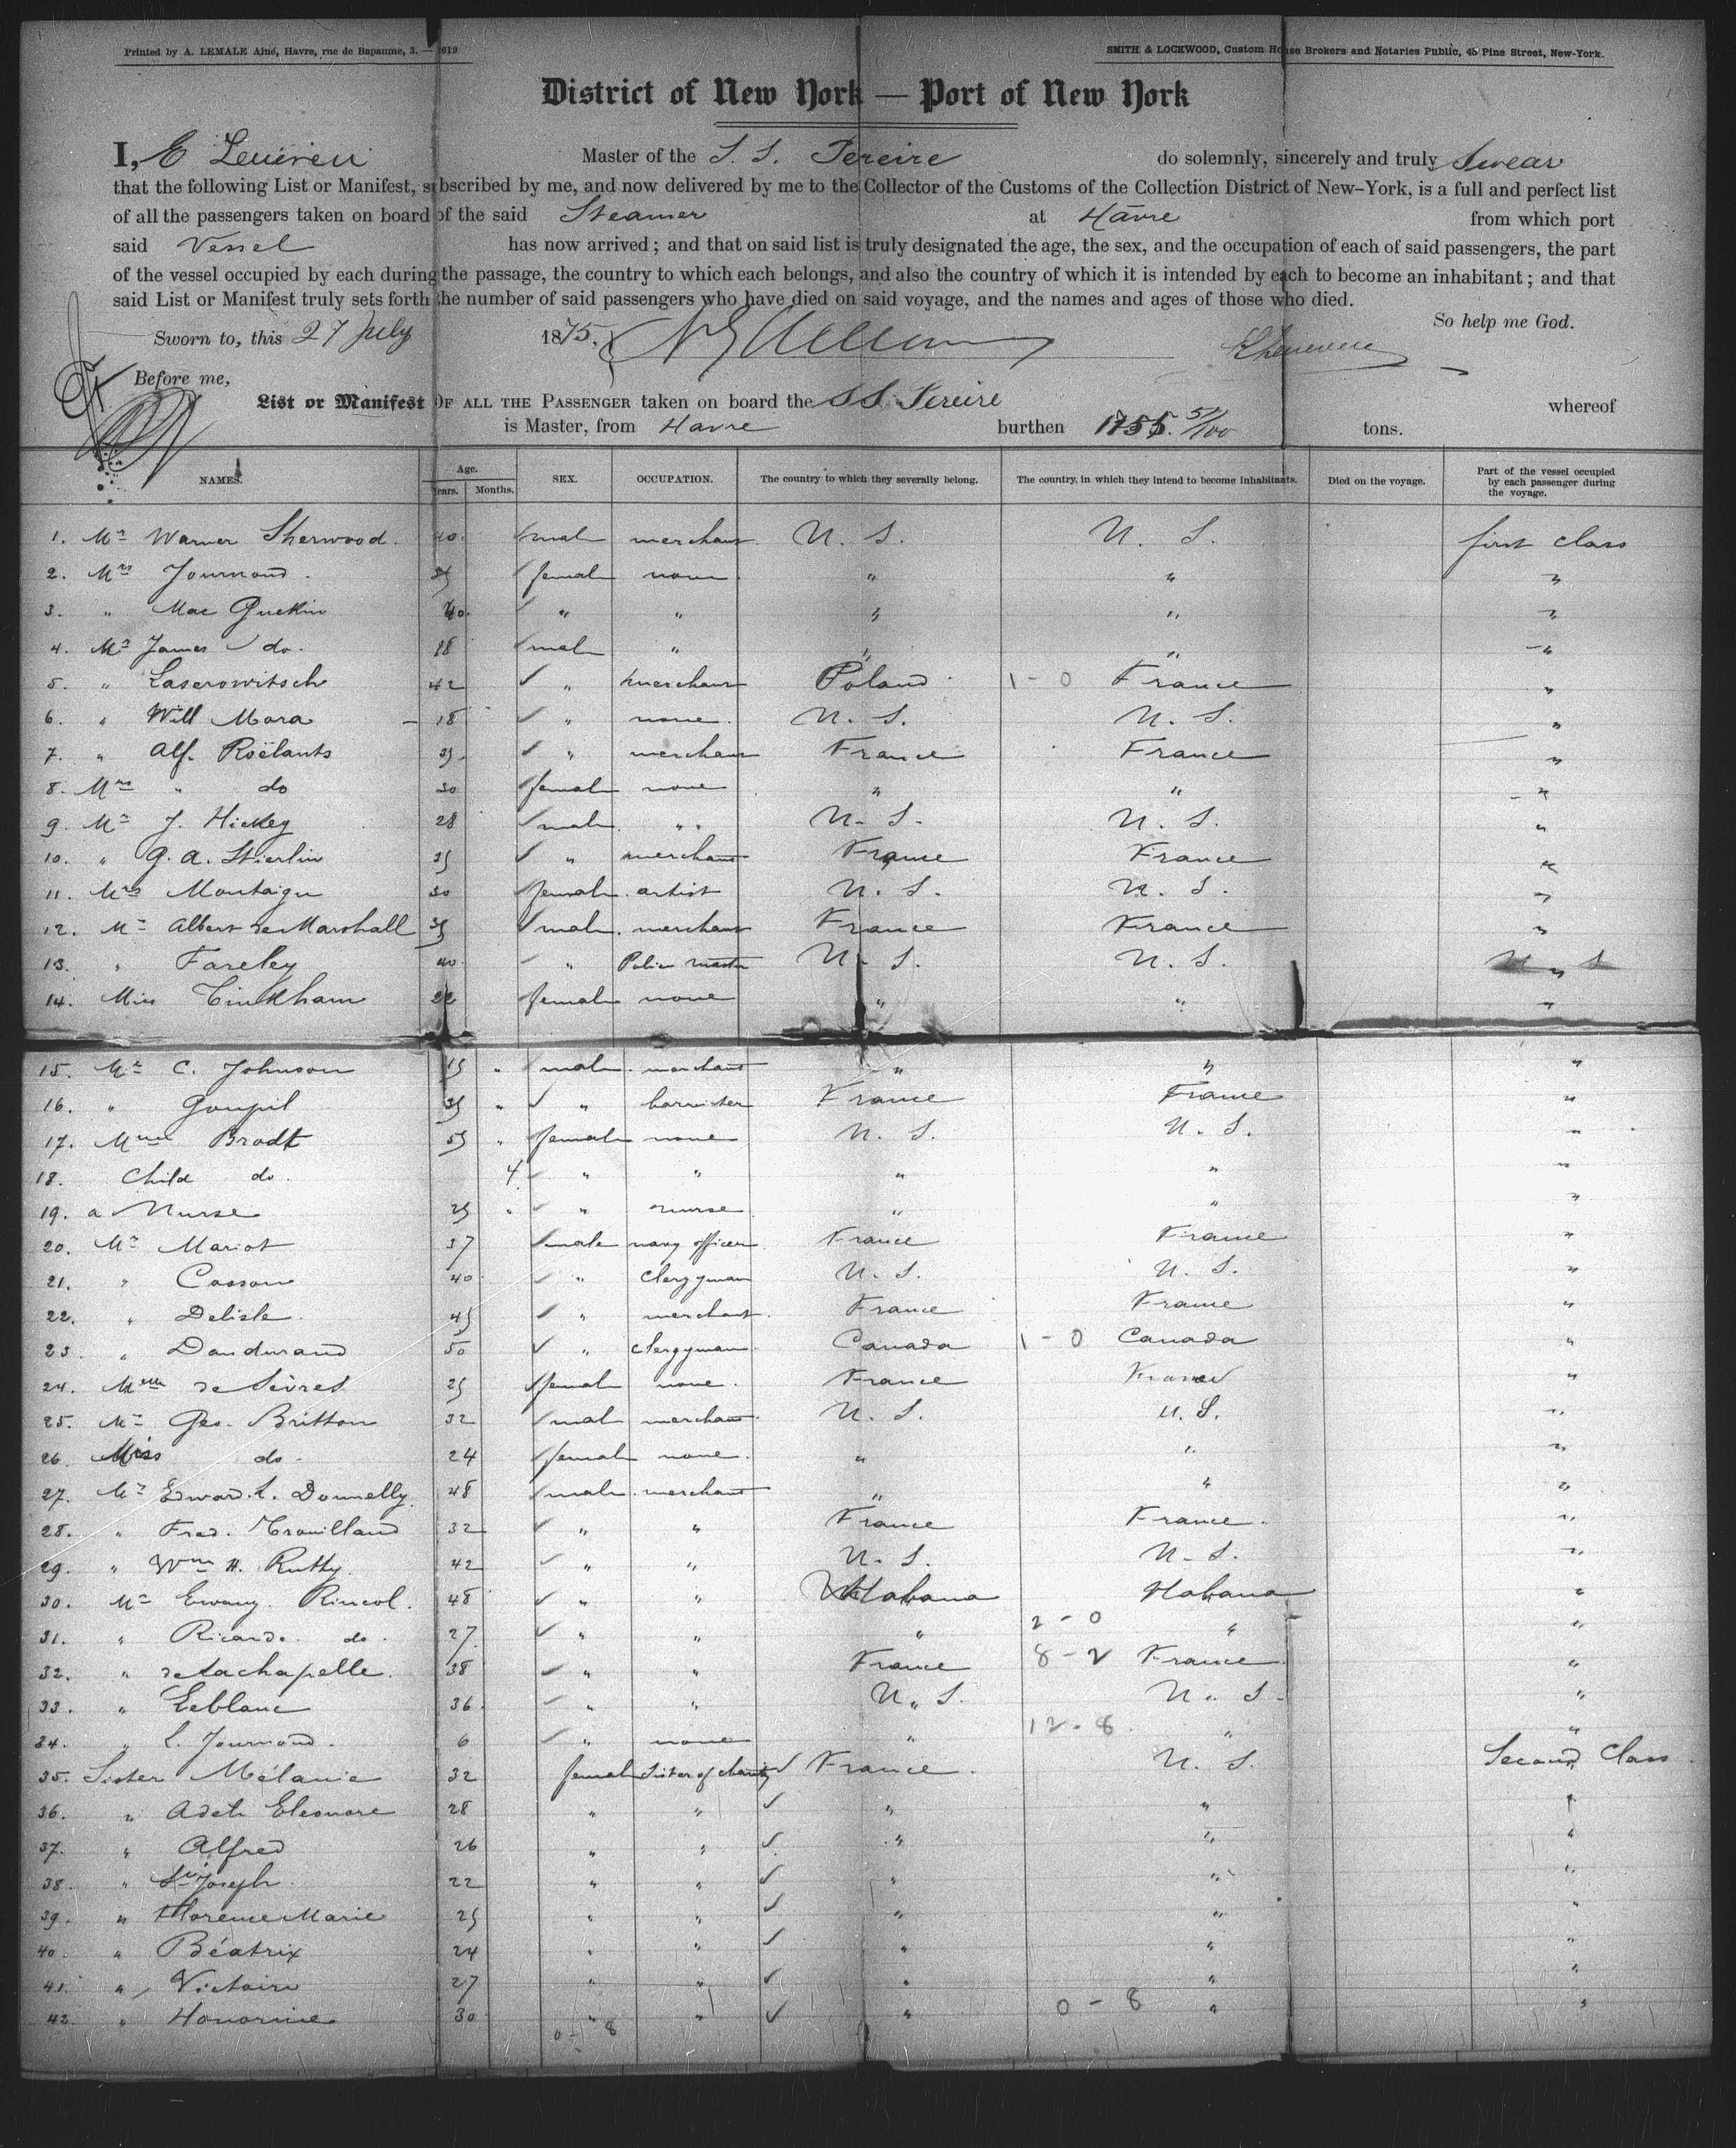 Printed by A. LEMALE Aîné, Havre, rue de Bapaume, 3. — 2619
SMITH & LOCKWOOD, Custom House Brokers and Notaries Public, 45 Pine Street, New-York.
District of New York — Port of New York
I, E Master of the S. S. Pereire do solemnly, sincerely and truly Swear
that the following List or Manifest, subscribed by me, and now delivered by me to the Collector of the Customs of the Collection District of New-York, is a full and perfect list
of all the passengers taken on board of the said Steamer at Havre from which port
said Vessel has now arrived; and that on said list is truly designated the age, the sex, and the occupation of each of said passengers, the part
of the vessel occupied by each during the passage, the country to which each belongs, and also the country of which it is intended by each to become an inhabitant; and that
said List or Manifest truly sets forth the number of said passengers who have died on said voyage, and the names and ages of those who died.
So help me God.
Sworn to, this 27 July 1875.
Before me,
List or Manifest OF ALL THE PASSENGER taken on board the SS. Pereire whereof
is Master, from Havre burthen 1755. 51/100 tons.
NAMES. Age. Years. Months. SEX. OCCUPATION. The country to which they severally belong. The country, in which they intend to become inhabitants. Died on the voyage. Part of the vessel occupied by each passenger during the voyage.
1. Mr Warner Sherwood. 40. male merchant. U. S. U. S. first class
2. Mrs Journaud. 35 female none. " " "
3. " Mac Guckin 40. " " " " "
4. Mr James do. 18 male " " " "
5. " Laserowitsch 42 " merchant Poland 1-0 France "
6. " Will Mora 18 " none. U. S. U. S. "
7. " Alf. Roëlants 35. " merchant France France "
8. Mrs " do 30 female none " " "
9. Mr J. Hickey 28 male " U. S. U. S. "
10. " G. A. Stierlin 35 " merchant France France "
11. Mrs Montaigu 30 female artist U. S. U. S. "
12. Mr Albert de Marshall 35 male merchant France France "
13. " Fareley 40. " U. S. U. S. "
14. Miss Tinkham 22 female none " " "
15. Mr C. Johnson " male merchant " " "
16. " Goupil 35 " " barrister France France "
17. Mme Brodt 55 " female none U. S. U. S. "
18. Child do. 4 " " " " "
19. a Nurse 25 " " nurse " " "
20. Mr Mariot 37 male navy officer France France "
21. " Cosson 40 " clergyman U. S. U. S. "
22. " Delisle 45 " merchant. France France "
23. " Dandurand 50 " clergyman Canada 1-0 Canada "
24. Melle de Sèvres 25 female none. France France "
25. Mr Geo. Britton 32 male merchant U. S. U. S. "
26. Miss do. 24 female none. " " "
27. Mr Edward. L. Donnelly 48 male merchant " " "
28. " Fred. Trouilland 32 " " France France. "
29. " Wm H. Rutty. 42 " " U. S. U. S. "
30. Mr Ewang. Rincol. 48 " " Habana Habana "
31. " Ricardo. do. 27 " " " 2-0 " "
32. " de Lachapelle. 38 " " France 8-2 France "
33. " Leblanc 36. " " U. S. U. S. "
34. " L. Journaud. 6 " none " 12-8 " "
35. Sister Mélanie 32 female Sister of charity France. U. S. Second Class.
36. " Adele Eleonore 28 " " " " "
37. " Alfred 26 " " " " "
38. " St Joseph 22 " " " " "
39. " Florence Marie 25 " " " " "
40. " Béatrix 24 " " " " "
41. " Victoire 27 " " " " "
42. " Honorine 30 " " " 0-8 " "
0-8